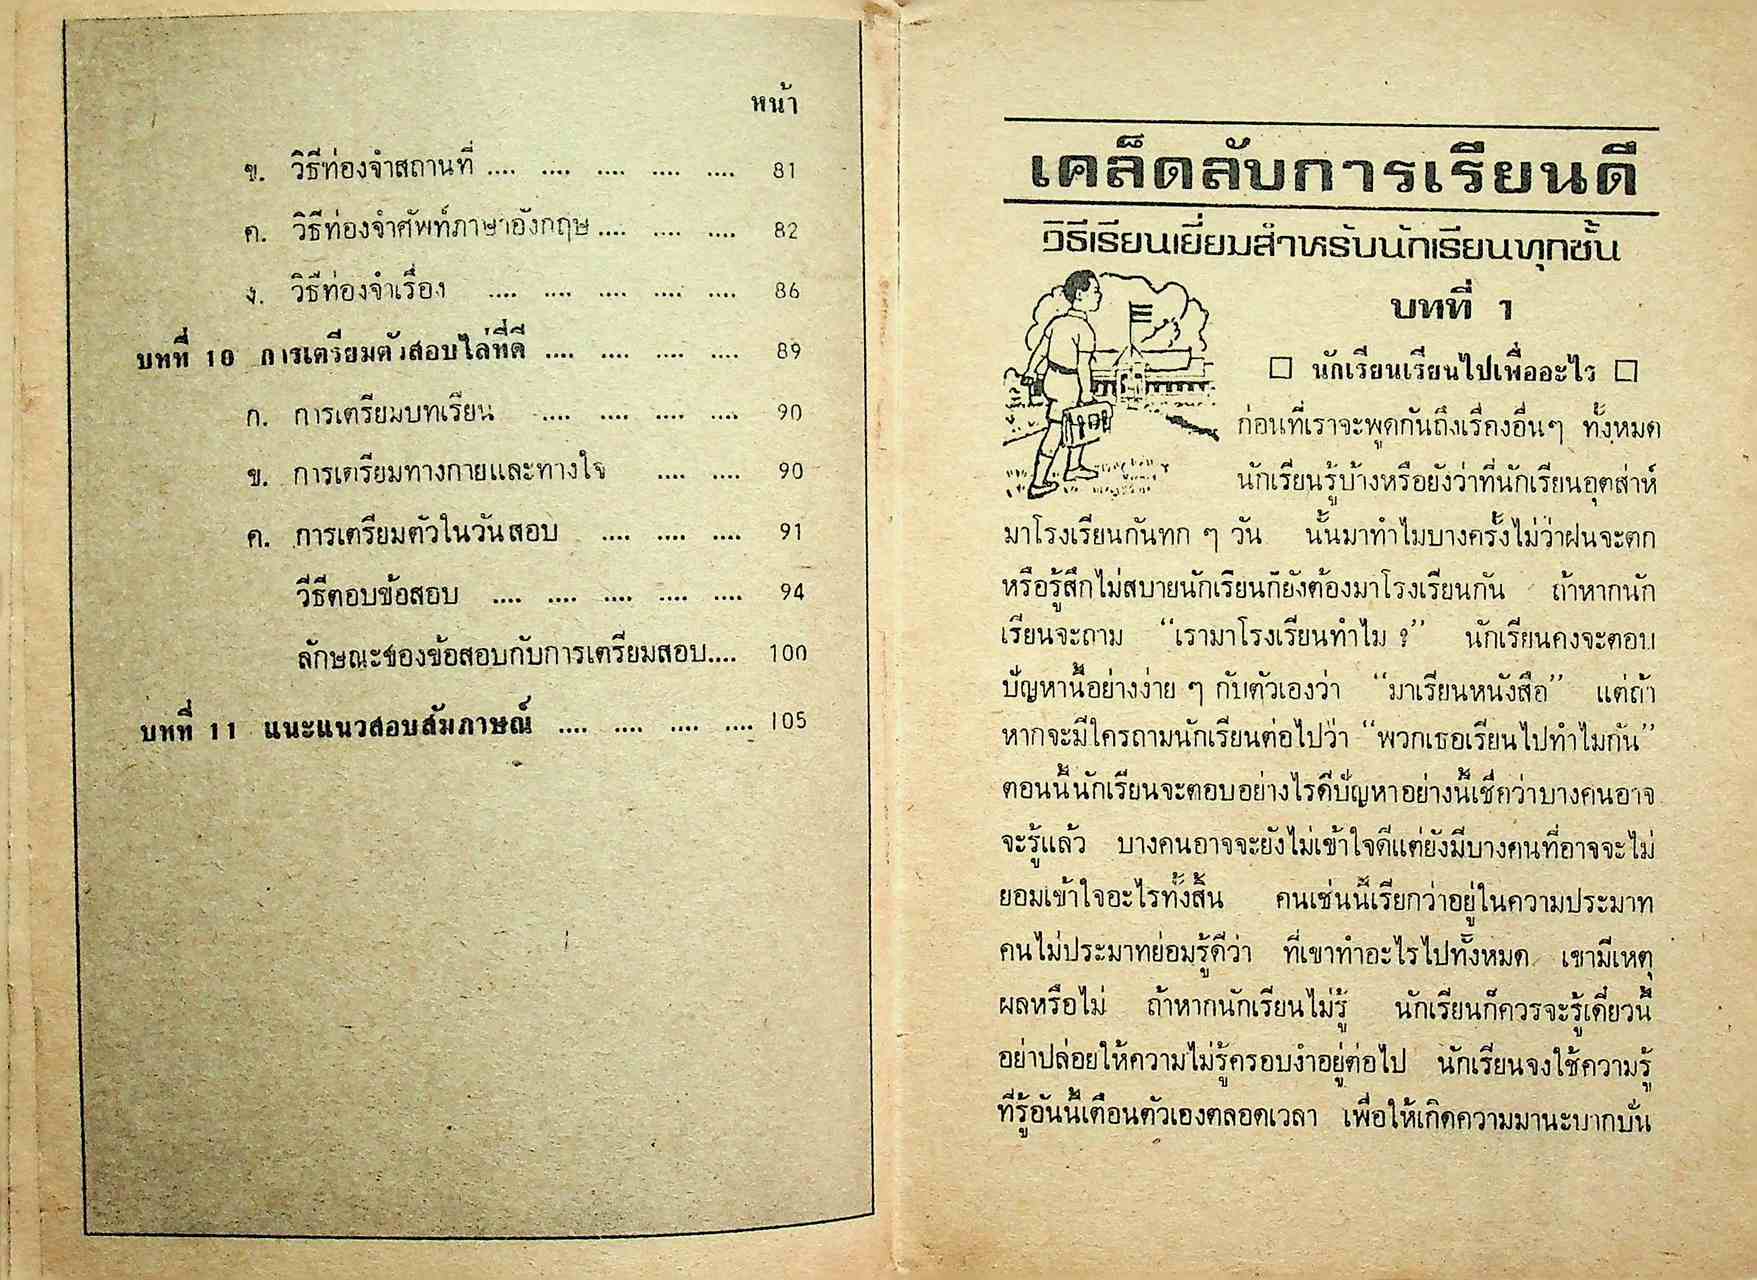 หน้า
ข. วิธีท่องจำสถานที่ .... .... .... .... .... 81
ค. วิธีท่องจำศัพท์ภาษาอังกฤษ .... .... .... 82
ง. วิธีท่องจำเรื่อง .... .... .... .... .... 86
บทที่ 10 การเตรียมตัวสอบไล่ที่ดี .... .... .... .... 89
ก. การเตรียมบทเรียน .... .... .... .... 90
ข. การเตรียมทางกายและทางใจ .... .... 90
ค. การเตรียมตัวในวันสอบ .... .... .... 91
วีธีตอบข้อสอบ .... .... .... .... .... 94
ลักษณะของข้อสอบกับการเตรียมสอบ .... 100
บทที่ 11 แนะแนวสอบสัมภาษณ์ .... .... .... .... 105
เคล็ดลับการเรียนดี
วิธีเรียนเยี่ยมสำหรับนักเรียนทุกชั้น
บทที่ 1
□ นักเรียนเรียนไปเพื่ออะไร □
ก่อนที่เราจะพูดกันถึงเรื่องอื่นๆ ทั้งหมด
นักเรียนรู้บ้างหรือยังว่าที่นักเรียนอุตส่าห์
มาโรงเรียนกันทุก ๆ วัน นั้นมาทำไมบางครั้งไม่ว่าฝนจะตก
หรือรู้สึกไม่สบายนักเรียนก็ยังต้องมาโรงเรียนกัน ถ้าหากนัก
เรียนจะถาม “เรามาโรงเรียนทำไม ?” นักเรียนคงจะตอบ
ปัญหานี้อย่างง่าย ๆ กับตัวเองว่า “มาเรียนหนังสือ” แต่ถ้า
หากจะมีใครถามนักเรียนต่อไปว่า “พวกเธอเรียนไปทำไมกัน”
ตอนนี้นักเรียนจะตอบอย่างไรดีปัญหาอย่างนี้เชื่อว่าบางคนอาจ
จะรู้แล้ว บางคนอาจจะยังไม่เข้าใจดีแต่ยังมีบางคนที่อาจจะไม่
ยอมเข้าใจอะไรทั้งสิ้น คนเช่นนี้เรียกว่าอยู่ในความประมาท
คนไม่ประมาทย่อมรู้ดีว่า ที่เขาทำอะไรไปทั้งหมด เขามีเหตุ
ผลหรือไม่ ถ้าหากนักเรียนไม่รู้ นักเรียนก็ควรจะรู้เดี๋ยวนี้
อย่าปล่อยให้ความไม่รู้ครอบงำอยู่ต่อไป นักเรียนจงใช้ความรู้
ที่รู้อันนี้เตือนตัวเองตลอดเวลา เพื่อให้เกิดความมานะบากบั่น